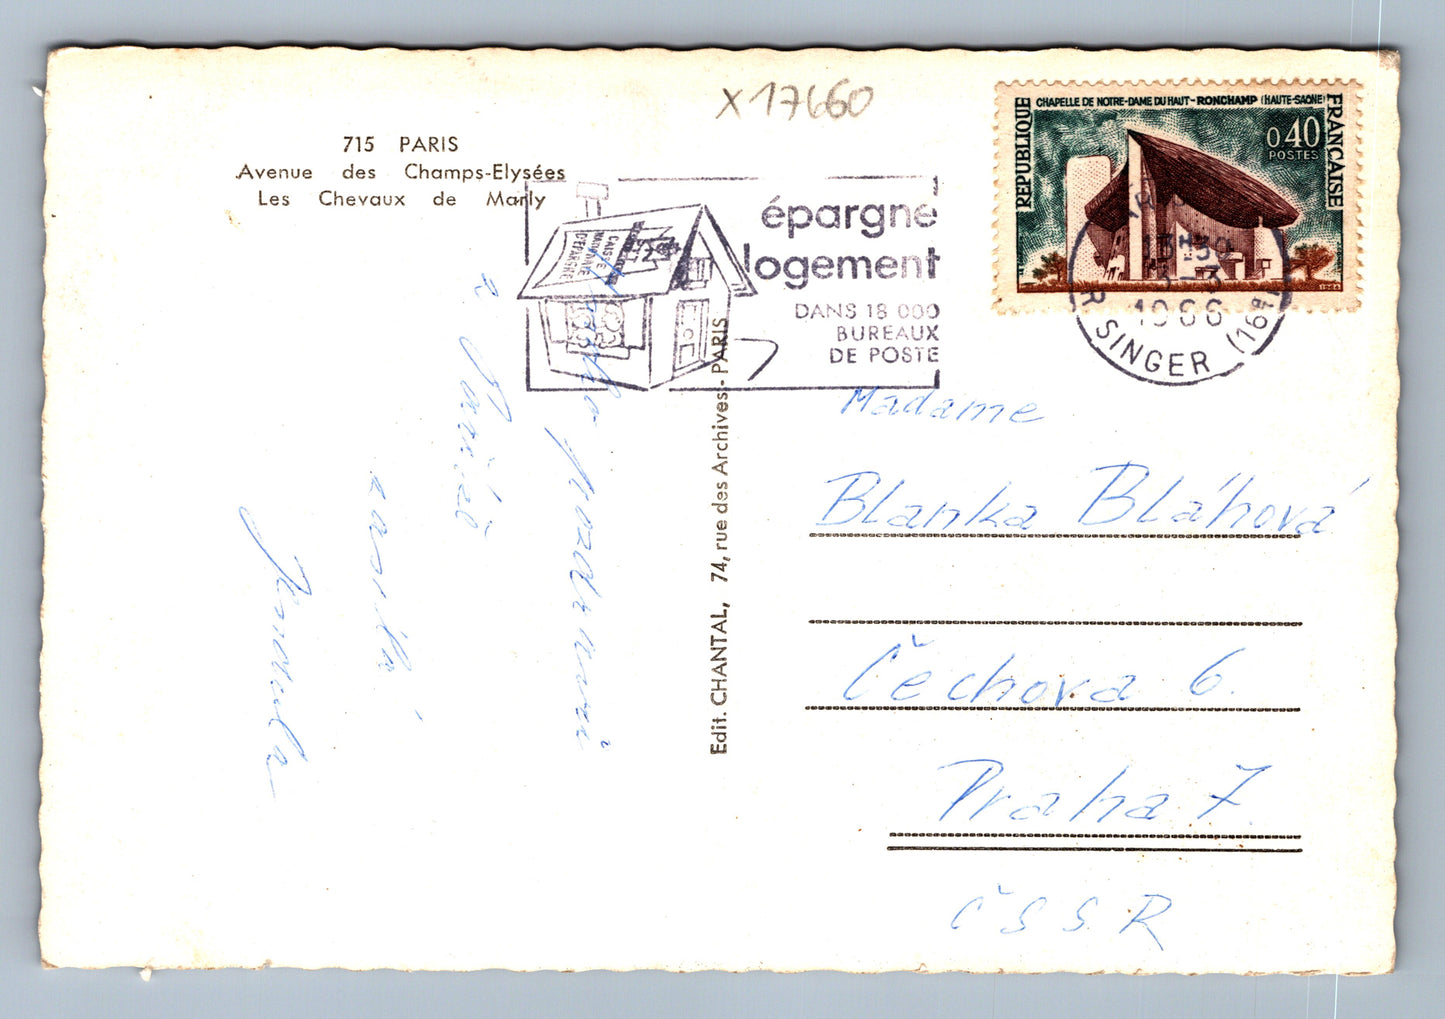 X17660
715 PARIS
Avenue des Champs-Elysées
Les Chevaux de Marly
épargne
logement
DANS 18 000
BUREAUX
DE POSTE
CAISSE
NATIONALE
D'ÉPARGNE
CHAPELLE DE NOTRE-DAME DU HAUT-RONCHAMP (HAUTE-SAÔNE)
RÉPUBLIQUE
FRANÇAISE
0,40
POSTES
1964
13H30
-3
1966
R SINGER (16E)
Edit. CHANTAL, 74, rue des Archives-PARIS
Mnoho pozdravů
z Paříže
zasílá
Jarmila
Madame
Blanka Bláhová
Čechova 6.
Praha 7.
ČSSR